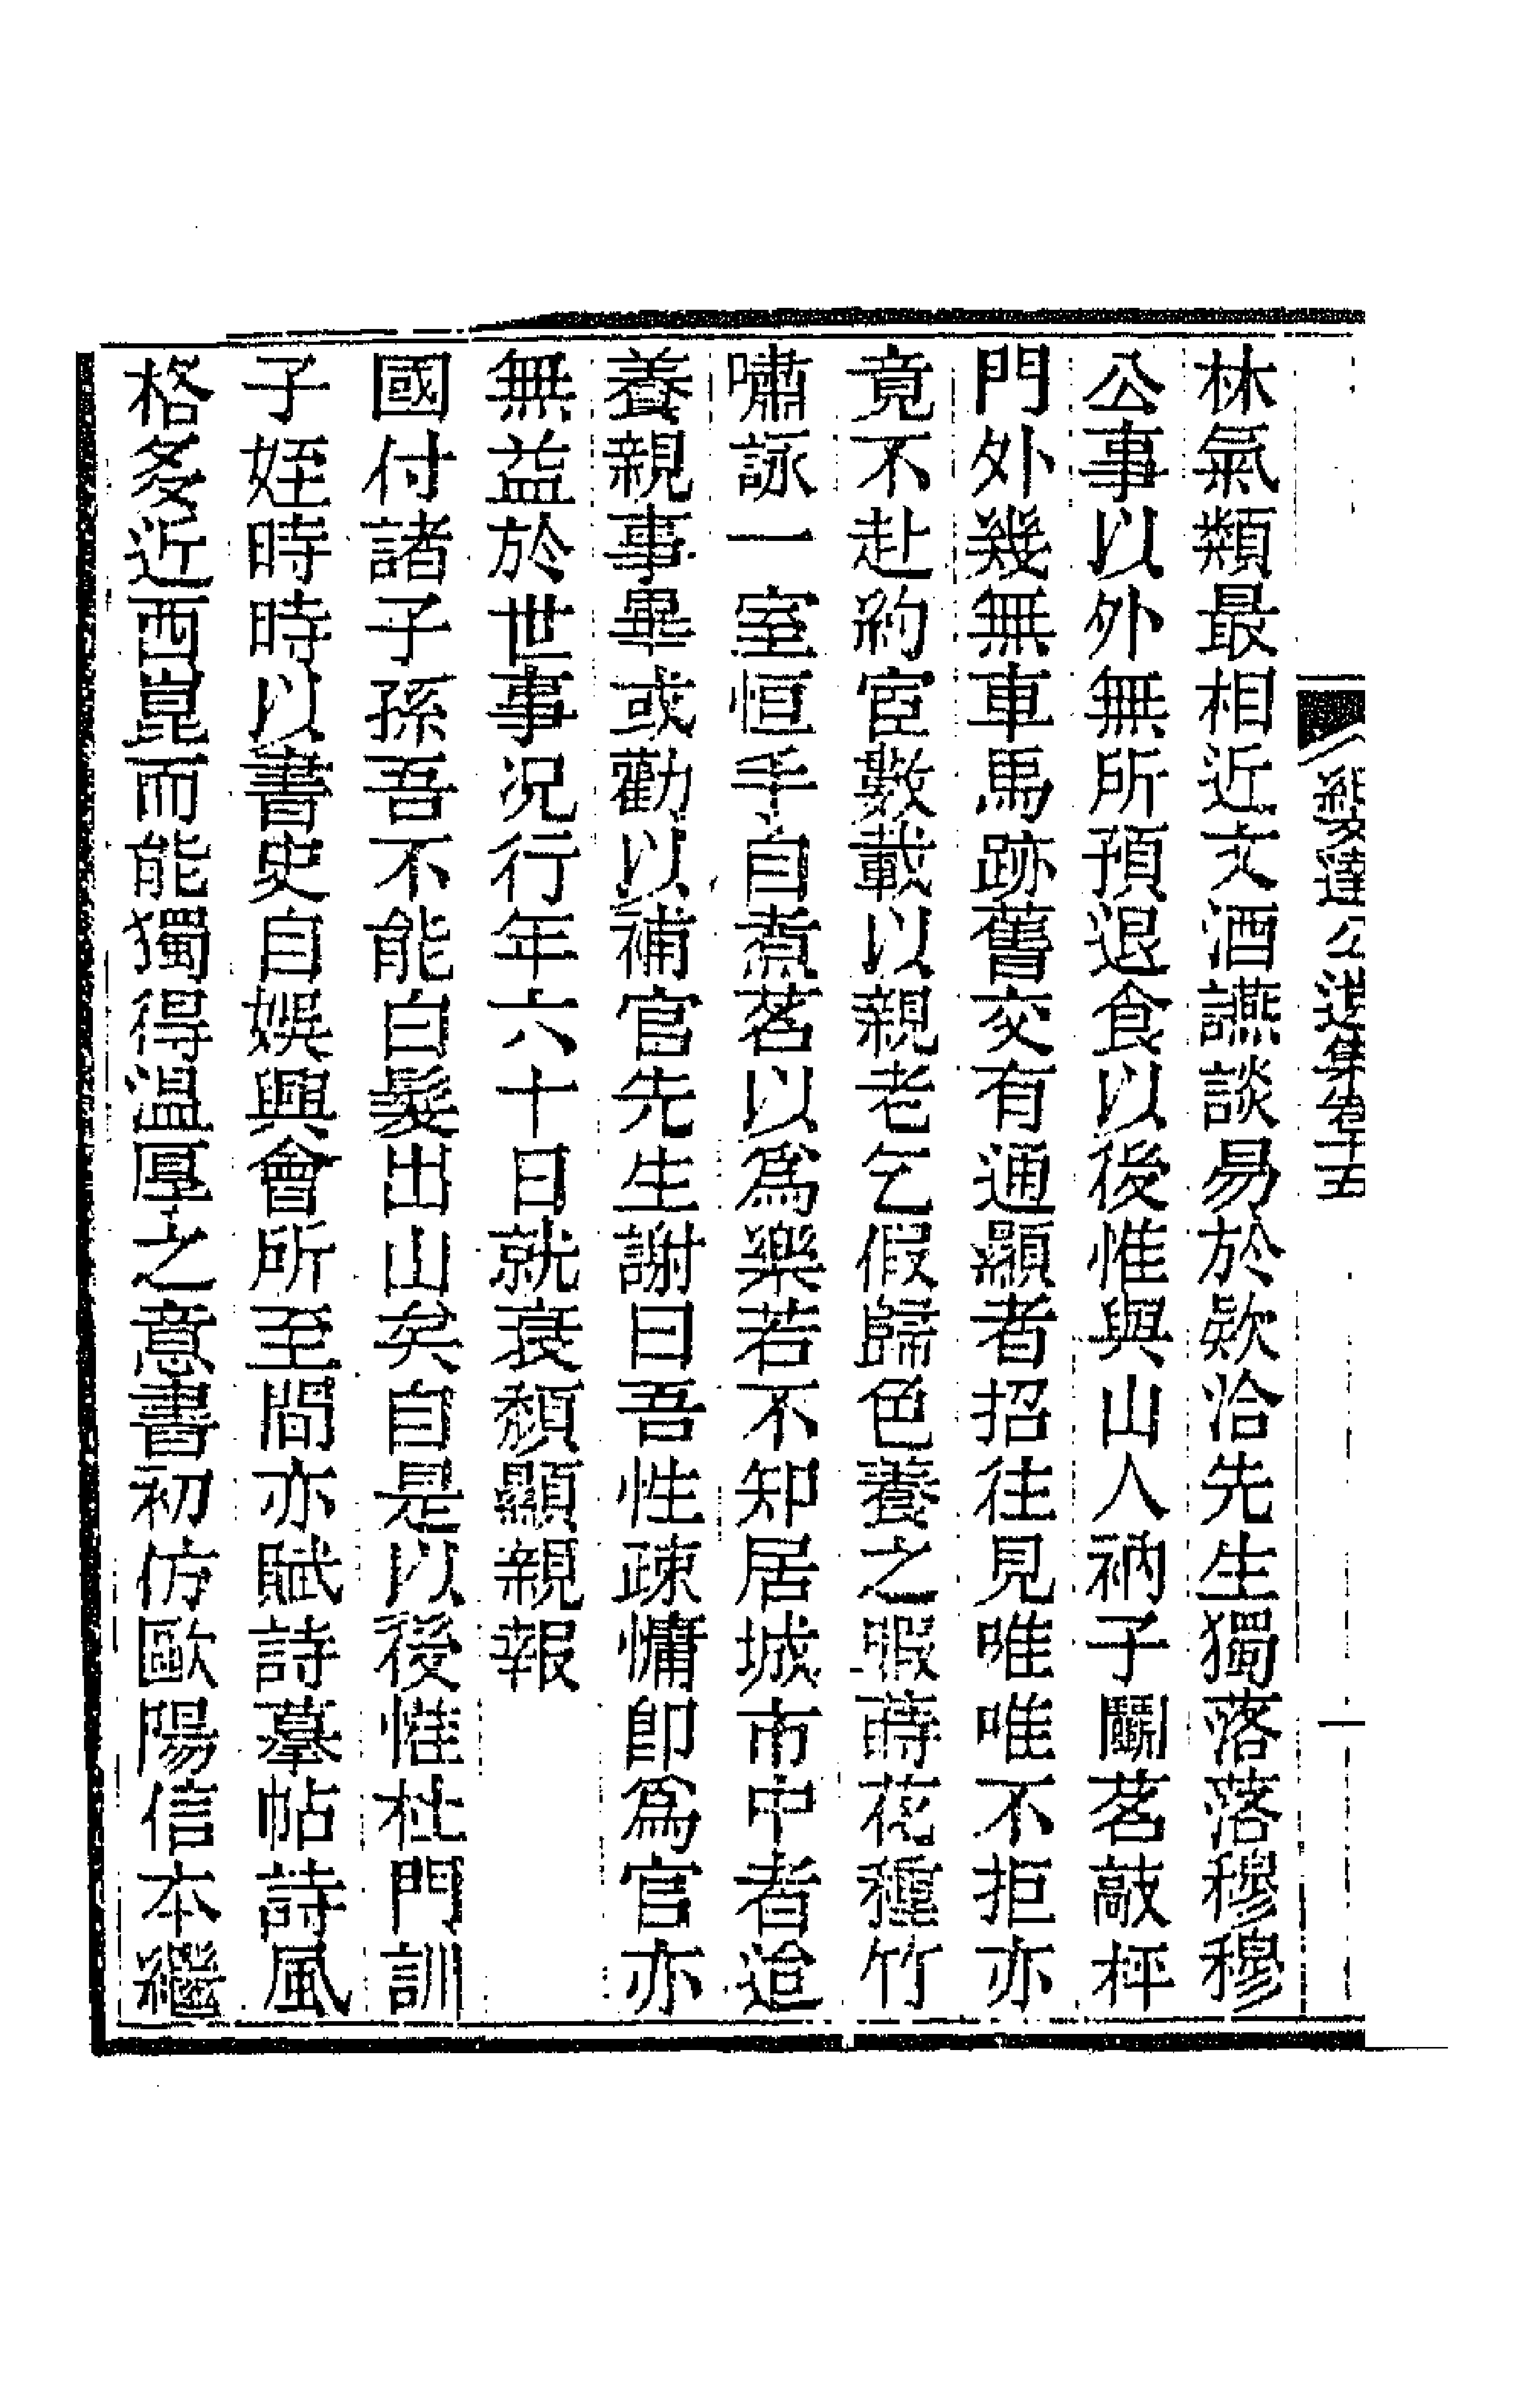 紀文達公遺集卷十五
一
林氣類最相近文酒讌談易於款洽先生獨落落穆穆
公事以外無所預退食以後惟與山人衲子鬬茗敲枰
門外幾無車馬跡舊交有通顯者招往見唯唯不拒亦
竟不赴約宦數載以親老乞假歸色養之暇蒔花種竹
嘯詠一室恒手自煮茗以爲樂若不知居城市中者迨
養親事畢或勸以補官先生謝曰吾性疎慵卽爲官亦
無益於世事况行年六十日就衰頽顯親報
國付諸子孫吾不能白髮出山矣自是以後惟杜門訓
子姪時時以書史自娛興會所至間亦賦詩摹帖詩風
格多近西崑而能獨得温厚之意書初仿歐陽信本繼